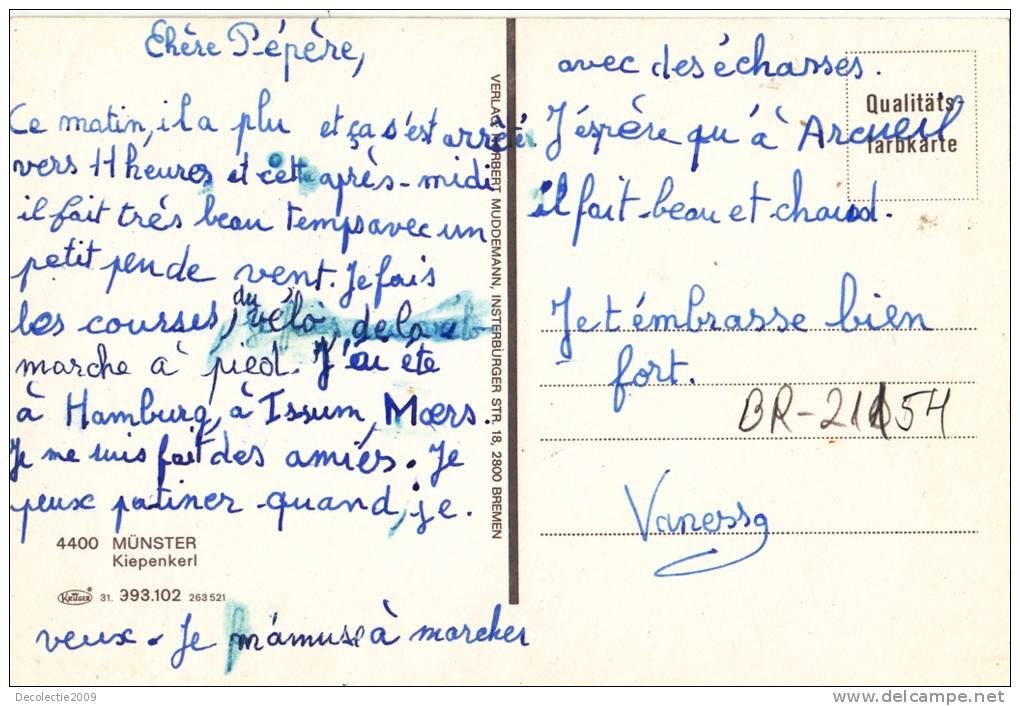 Chère Pépère,
Ce matin, il a plu et ça s'est arrêter
vers 11 heures et cette après-midi
il fait trés beau temps avec un
petit peu de vent. Je fais
les courses, du vélo, de la
marche à pied. J'ai été
à Hamburg, à Issum, Mœrs.
Je me suis fait des amies. Je
peux patiner quand, je.
4400 MÜNSTER
Kiepenkerl
KRÜGER 31. 993.102 263 521
veux. Je m'amuse à marcher
VERLAG NORBERT MUDDEMANN, INSTERBURGER STR. 18, 2800 BREMEN
avec des échasses.
Qualitäts-
farbkarte
J'éspère qu'à Arcueil
il fait beau et chaud.
Je t'émbrasse bien
fort.
BR-21154
Vanessa
Decolectie2009
www.delcampe.net